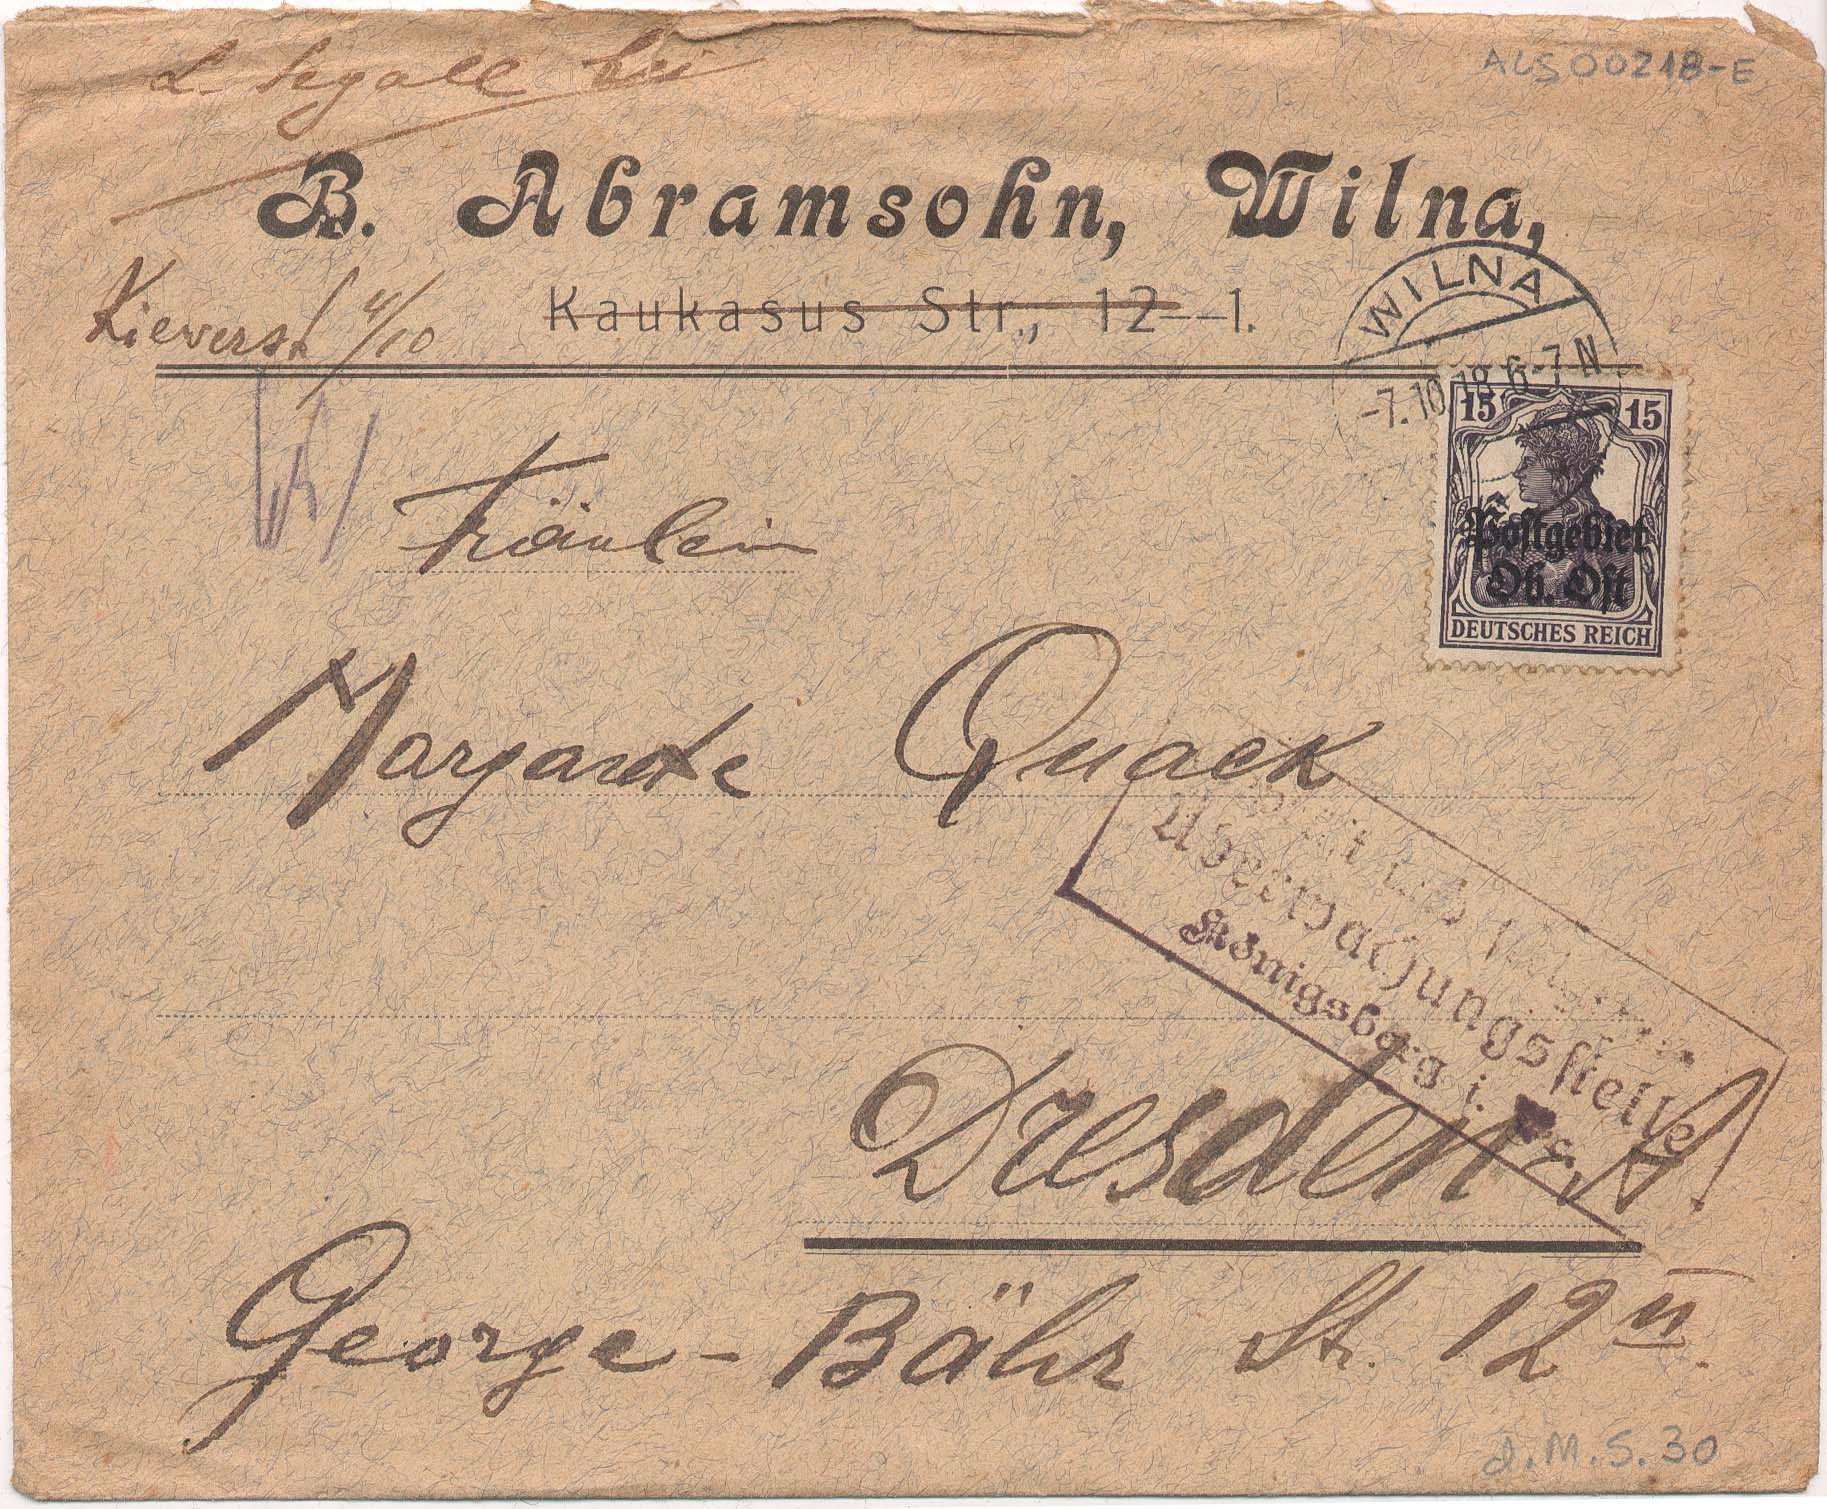 L. Segall bei
ALS00218-E
B. Abramsohn, Wilna,
Kaukasus Str., 12—1.
Kieverst 4/10
WILNA
-7.10.18.6-7N
15 15
Postgebiet
Ob. Ost
DEUTSCHES REICH
Fräulein
Margarete Quack
Post und
Überwachungsstelle
Königsberg i. Pr.
Dresden A.
George-Bähr St. 12 II.
d.M.S.30